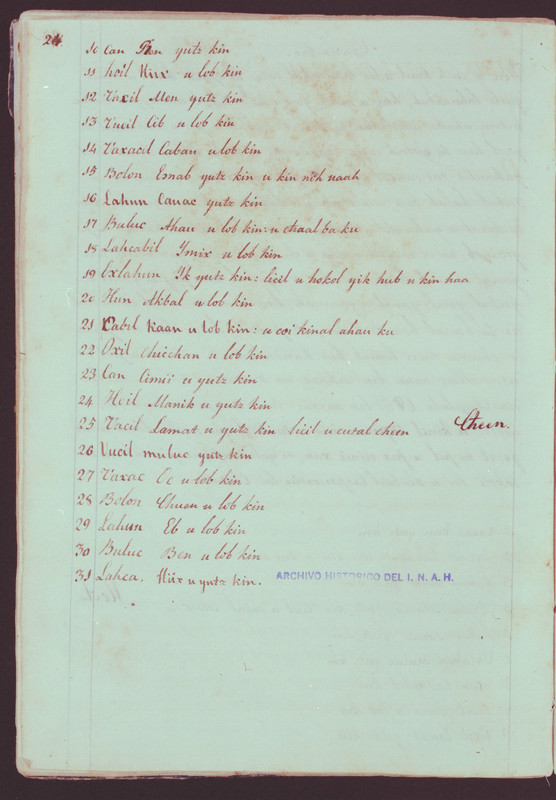 24
10 Can Ben yutz kin
11 hoil Hiix u lob kin
12 Vacil Men yutz kin
13 Vucil Cib u lob kin
14 Vaxacil Caban u lob kin
15 Bolon Esnab yutz kin u kin noh uaah
16 Lahun Cauac yutz kin
17 Buluc Ahau u lob kin: u chaal ba ku
18 Lahcabil Ymix u lob kin
19 Oxlahun Yk yutz kin: licil u hokol yik hub u kin haa
20 Hun Akbal u lob kin
21 Cabil Kaan u lob kin: u coi kinal ahau ku
22 Oxil Chicchan u lob kin
23 Can Cimii u yutz kin
24 Hoil Manik u yutz kin
25 Vacil Lamat u yutz kin licil u cutal cheen Cheen.
26 Vucil muluc yutz kin
27 Vaxac Oc u lob kin
28 Bolon Chuen u lob kin
29 Lahun Eb u lob kin
30 Buluc Ben u lob kin
31 Lahca. Hiix u yutz kin. ARCHIVO HISTORICO DEL I. N. A. H.